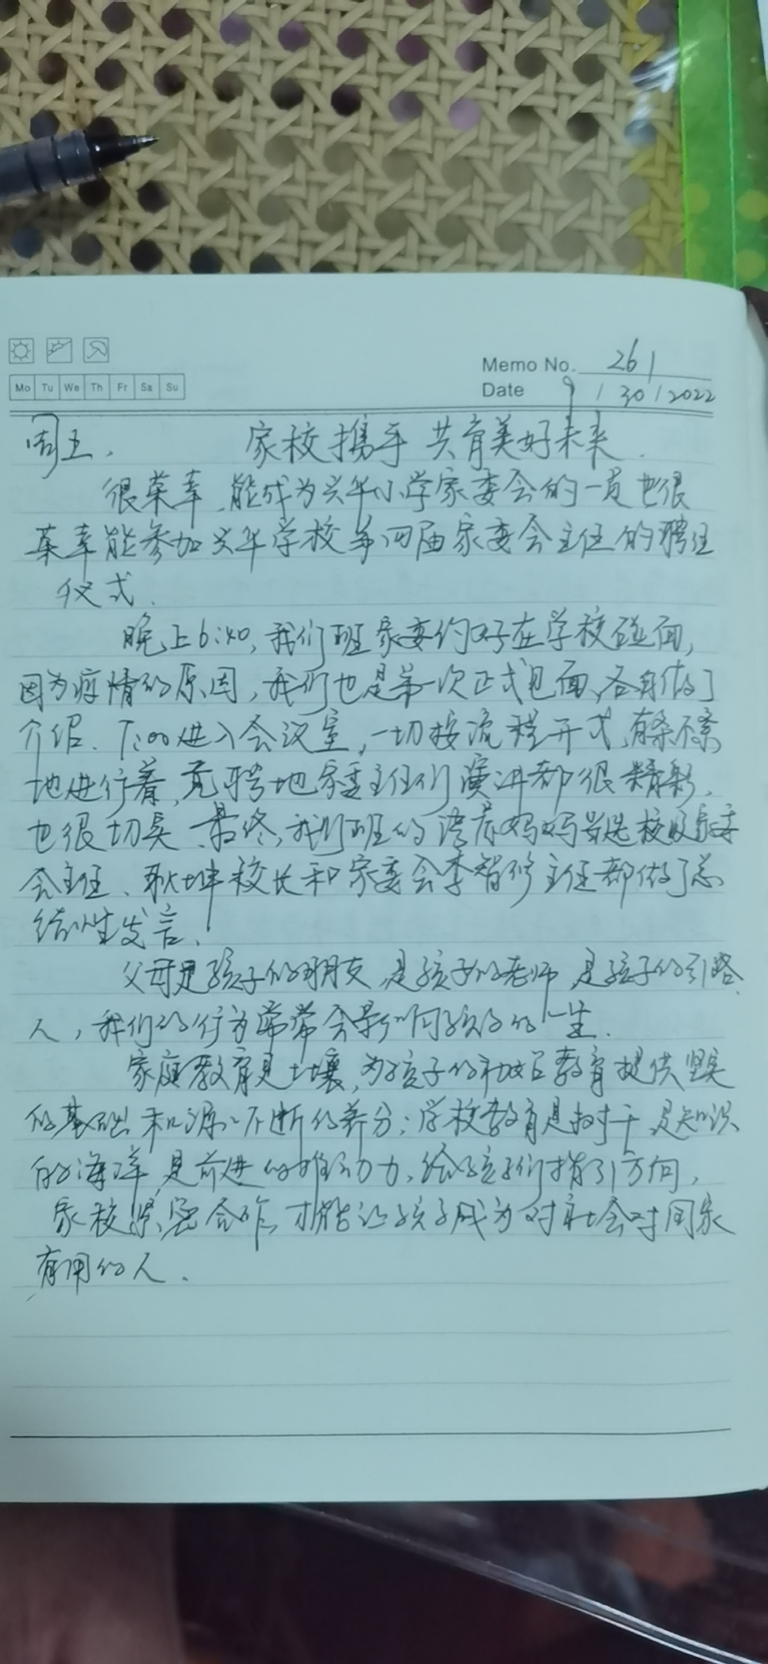 Memo No. 261
Mo Tu We Th Fr Sa Su
Date 9/30/2022
周五. 家校携手 共育美好未来.
很荣幸,能成为兴华小学家委会的一员也很
荣幸能参加兴华学校第四届家委会主任的聘任
仪式.
晚上6:40,我们班家委约好在学校碰面,
因为疫情的原因,我们也是第一次正式见面,各自做了
介绍. 7:00进入会议室,一切按流程开式,有条不紊
地进行着,竞聘地家委主任们演讲都很精彩,
也很切实 最终,我们班的 妈妈当选校级家委
会主任、耿坤校长和家委会李智修主任都做了总
结性发言.
父母是孩子的朋友,是孩子的老师,是孩子的引路
人,我们的行为常常会影响孩子的一生.
家庭教育是土壤,为孩子的初始教育提供坚实
的基础和源源不断的养分;学校教育是树干,是知识
的海洋,是前进的推动力,给孩子们指引方向,
家校紧密合作,才能让孩子成为对社会对国家
有用的人.